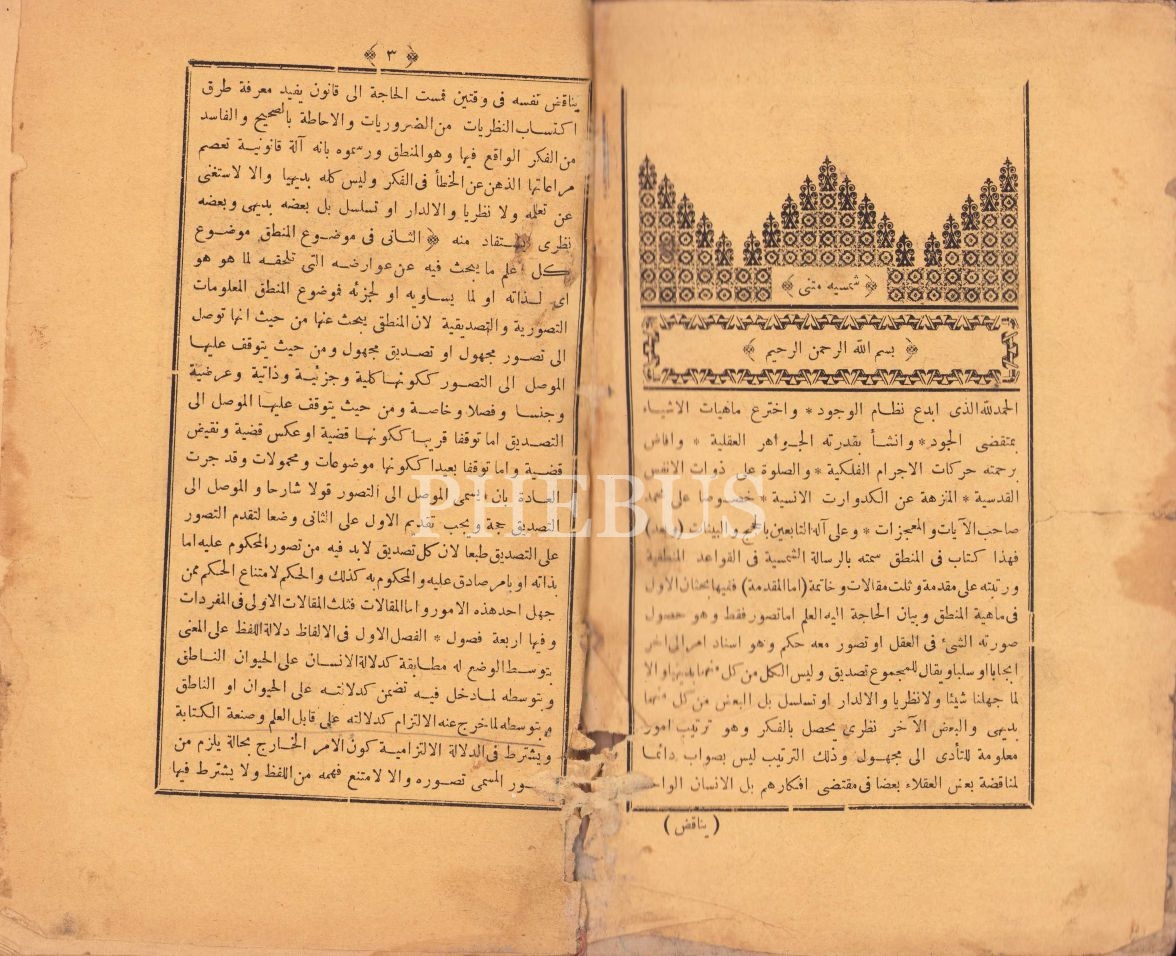 ﴿ شمسيه متنى ﴾
﴿ بسم الله الرحمن الرحيم ﴾
الحمدلله الذى ابدع نظام الوجود * واخترع ماهيات الاشياء
بمتقضى الجود * وانشأ بقدرته الجواهر العقلية * وافاض
برحمته حركات الاجرام الفلكية * والصلوة على ذوات الانفس
القدسية * المنزهة عن الكدوارت الانسية * خصوصا على محمد
صاحب الآيات والمعجزات * وعلى آله التابعين بالحجج والبينات (وبعد)
فهذا كتاب فى المنطق سمته بالرسالة الشمسية فى القواعد المنطقية
ورتبته على مقدمة وثلث مقالات وخاتمة (اما المقدمة) ففيها بحثان الاول
فى ماهية المنطق وبيان الحاجة اليه العلم اما تصور فقط وهو حصول
صورته الشئ فى العقل او تصور معه حكم وهو اسناد امر الى آخر
ايجابا او سلبا ويقال للمجموع تصديق وليس الكل من كل منهما بديهيا والا
لما جهلنا شيئا ولا نظريا والالدار او تسلسل بل البعض من كل منهما
بديهى والبعض الآخر نظرى يحصل بالفكر وهو ترتيب امور
معلومة للتأدى الى مجهول وذلك الترتيب ليس بصواب دائما
لمناقضة بعض العقلاء بعضا فى مقتضى افكارهم بل الانسان الواحد
( يناقض )
﴿ ٣ ﴾
يناقض نفسه فى وقتين فمست الحاجة الى قانون يفيد معرفة طرق
اكتساب النظريات من الضروريات والاحاطة بالصحيح والفاسد
من الفكر الواقع فيها وهو المنطق ورسموه بانه آلة قانونية تعصم
مراعاتها الذهن عن الخطأ فى الفكر وليس كله بديهيا والا لاستغنى
عن تعلمه ولا نظريا والالدار او تسلسل بل بعضه بديهى وبعضه
نظرى يستفاد منه ﴿ الثانى فى موضوع المنطق موضوع
كل علم ما يبحث فيه عن عوارضه التى تلحقه لما هو هو
اى لذاته او لما يساويه او لجزئه فموضوع المنطق المعلومات
التصورية والتصديقية لان المنطق يبحث عنها من حيث انها توصل
الى تصور مجهول او تصديق مجهول ومن حيث يتوقف عليها
الموصل الى التصور ككونها كلية وجزئية وذاتية وعرضية
وجنسا وفصلا وخاصة ومن حيث يتوقف عليها الموصل الى
التصديق اما توقفا قريبا ككونها قضية او عكس قضية ونقيض
قضية واما توقفا بعيدا ككونها موضوعات ومحمولات وقد جرت
العادة بان يسمى الموصل الى التصور قولا شارحا والموصل الى
التصديق حجة ويجب تقديم الاول على الثانى وضعا لتقدم التصور
على التصديق طبعا لان كل تصديق لابد فيه من تصور المحكوم عليه اما
بذاته او بامر صادق عليه والمحكوم به كذلك والحكم لامتناع الحكم ممن
جهل احد هذه الامور واما المقالات فثلث المقالات الاولى فى المفردات
وفيها اربعة فصول * الفصل الاول فى الالفاظ دلالة اللفظ على المعنى
بتوسط الوضع له مطابقة كدلالة الانسان على الحيوان الناطق
وبتوسطه لما دخل فيه تضمن كدلالته على الحيوان او الناطق
وبتوسطه لما خرج عنه الالتزام كدلالته على قابل العلم وصنعة الكتابة
ويشترط فى الدلالة الالتزامية كون الامر الخارج بحالة يلزم من
المسمى تصوره والا لامتنع فهمه من اللفظ ولا يشترط فيها
PHEBUS